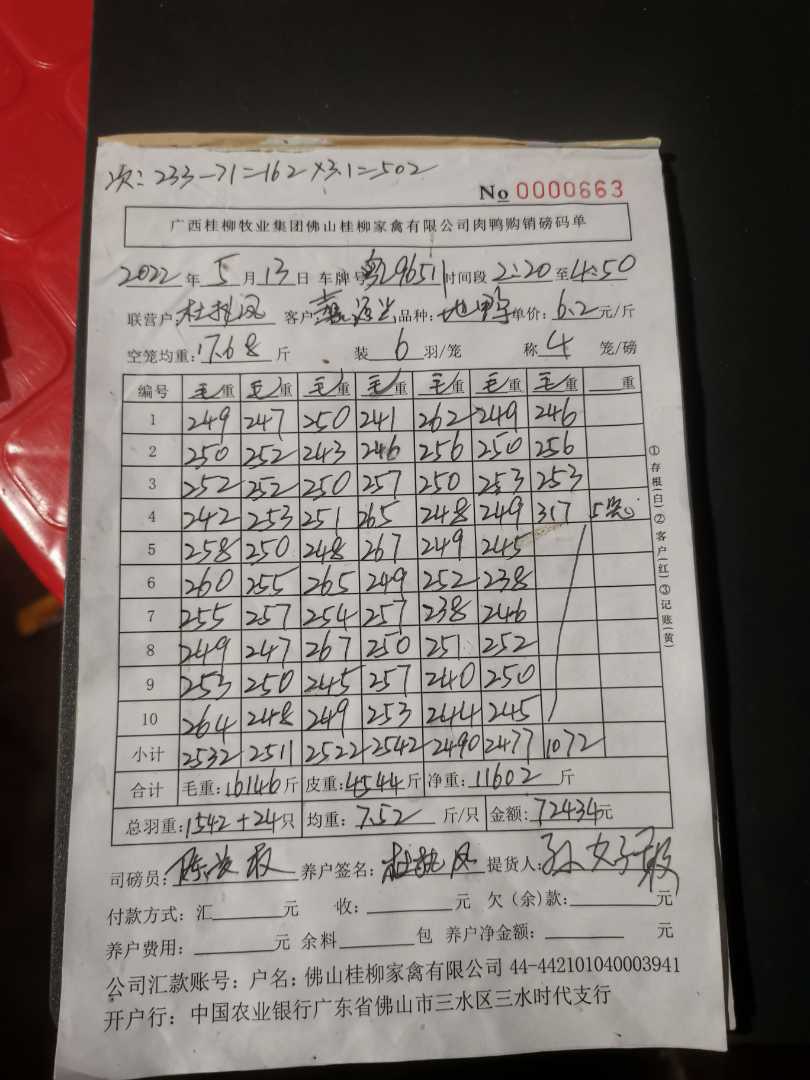 次: 233-71=162×3.1=502
No 0000663
广西桂柳牧业集团佛山桂柳家禽有限公司肉鸭购销磅码单
2022年5月13日 车牌号 粤L9651 时间段 2:20至4:50
联营户: 客户 品种: 单价: 6.2元/斤
空笼均重: 17.68斤 装6羽/笼 称4笼/磅
编号 毛重 毛重 毛重 毛重 毛重 毛重 毛重 重
1 249 247 250 241 262 249 246
2 250 252 243 246 256 250 256
3 252 252 250 257 250 253 253
4 242 253 251 265 248 249 317
5 258 250 248 267 249 245
6 260 255 265 249 252 238
7 255 257 254 257 238 246
8 249 247 267 250 251 252
9 253 250 245 257 240 250
10 264 248 249 253 244 245
小计 2532 2511 2522 2542 2490 2477 1072
合计 毛重: 16146斤 皮重: 4544斤 净重: 11602斤
总羽重: 1542+24只 均重: 7.52斤/只 金额: 72434元
司磅员: 养户签名: 提货人:
付款方式: 汇 元 收: 元 欠(余)款: 元
养户费用: 元 余料 包 养户净金额: 元
公司汇款账号: 户名: 佛山桂柳家禽有限公司 44-442101040003941
开户行: 中国农业银行广东省佛山市三水区三水时代支行
①存根(白)②客户(红)③记账(黄)